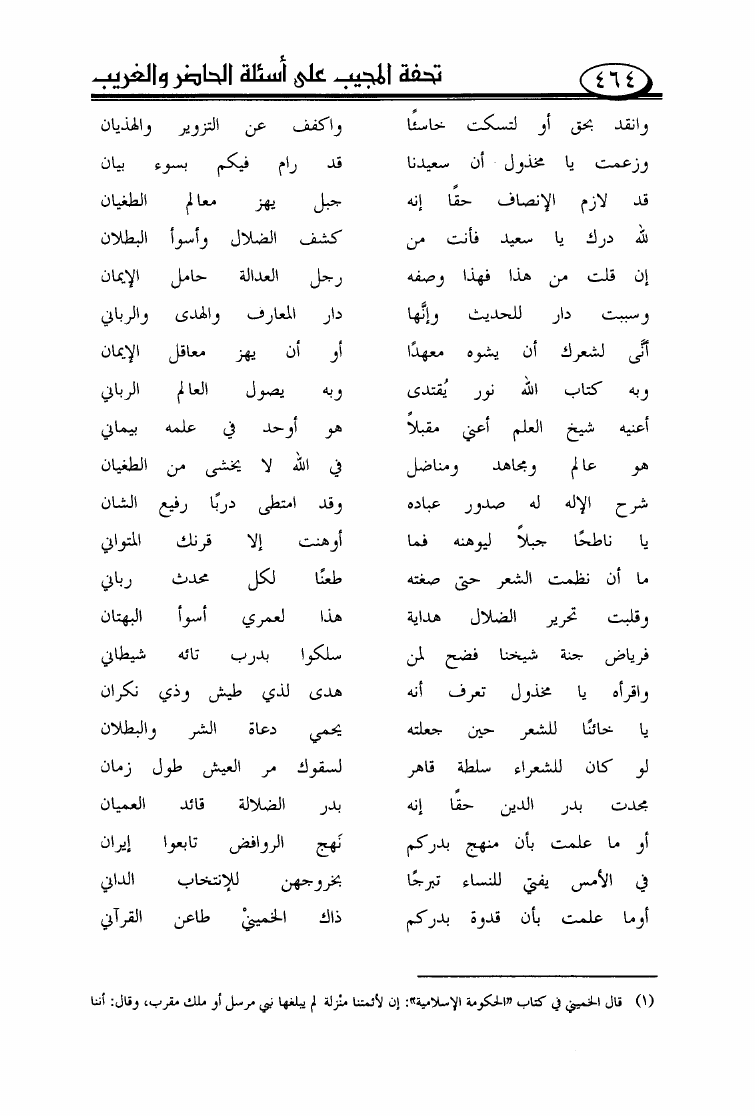 ٤٦٤ تحفة المجيب على أسئلة الحاضر والغريب
وانقد بحق أو لتسكت خاسئًا واكفف عن التزوير والهذيان
وزعمت يا مخذول أن سعيدنا قد رام فيكم بسوء بيان
قد لازم الإنصاف حقًا إنه جبل يهز معالم الطغيان
لله درك يا سعيد فأنت من كشف الضلال وأسوأ البطلان
إن قلت من هذا فهذا وصفه رجل العدالة حامل الإيمان
وسببت دار للحديث وإنَّها دار المعارف والهدى والرباني
أنَّى لشعرك أن يشوه معهدًا أو أن يهز معاقل الإيمان
وبه كتاب الله نور يُقتدى وبه يصول العالم الرباني
أعنيه شيخ العلم أعني مقبلاً هو أوحد في علمه بيماني
هو عالم ومجاهد ومناضل في الله لا يخشى من الطغيان
شرح الإله له صدور عباده وقد امتطى دربًا رفيع الشان
يا ناطحًا جبلاً ليوهنه فما أوهنت إلا قرنك المتواني
ما أن نظمت الشعر حتى صغته طعنًا لكل محدث رباني
وقلبت تحرير الضلال هداية هذا لعمري أسوأ البهتان
فرياض جنة شيخنا فضح لمن سلكوا بدرب تائه شيطاني
واقرأه يا مخذول تعرف أنه هدى لذي طيش وذي نكران
يا خائنًا للشعر حين جعلته يحمي دعاة الشر والبطلان
لو كان للشعراء سلطة قاهر لسقوك مر العيش طول زمان
مجدت بدر الدين حقًا إنه بدر الضلالة قائد العميان
أو ما علمت بأن منهج بدركم نَهج الروافض تابعوا إيران
في الأمس يفتي للنساء تبرجًا بخروجهن للإنتخاب الداني
أوما علمت بأن قدوة بدركم ذاك الخمينيْ طاعن القرآني
(١) قال الخميني في كتاب «الحكومة الإسلامية»: إن لأئمتنا منْزلة لم يبلغها نبي مرسل أو ملك مقرب، وقال: أننا